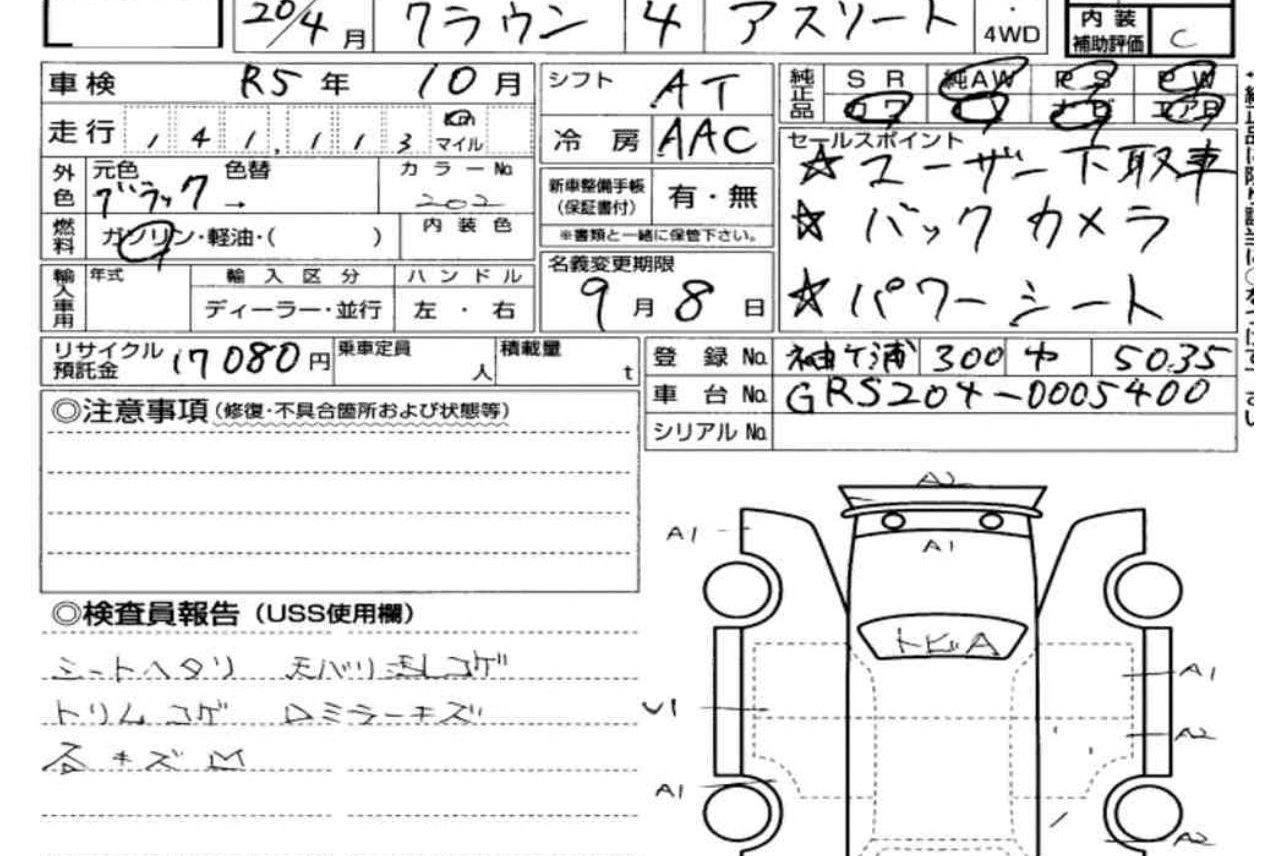 20/4月 クラウン 4 アスリート ・ 4WD
内装補助評価 C
車検 R5年 10月
シフト AT
純正品 SR 純AW PS PW
カワ TV ナビ エアB
走行 141,113 Km マイル
冷房 AAC
セールスポイント
☆ユーザー下取車
☆バックカメラ
☆パワーシート
外色 元色 ブラック → 色替
カラーNo. 202
新車整備手帳(保証書付) 有・無
※書類と一緒に保管下さい。
燃料 ガソリン・軽油・( )
内装色
名義変更期限
9月8日
輸入車用 年式 輸入区分 ハンドル
ディーラー・並行 左・右
リサイクル預託金 17080円 乗車定員 人 積載量 t
登録No. 袖ケ浦 300 や 5035
車台No. GRS204-0005400
シリアルNo.
◎注意事項(修復・不具合箇所および状態等)
◎検査員報告(USS使用欄)
シートヘタリ 天バリ コゲ
トリムコゲ ミラーキズ
キズ
A2
A1
A1
トビA
A1
U1
A2
A1
A2